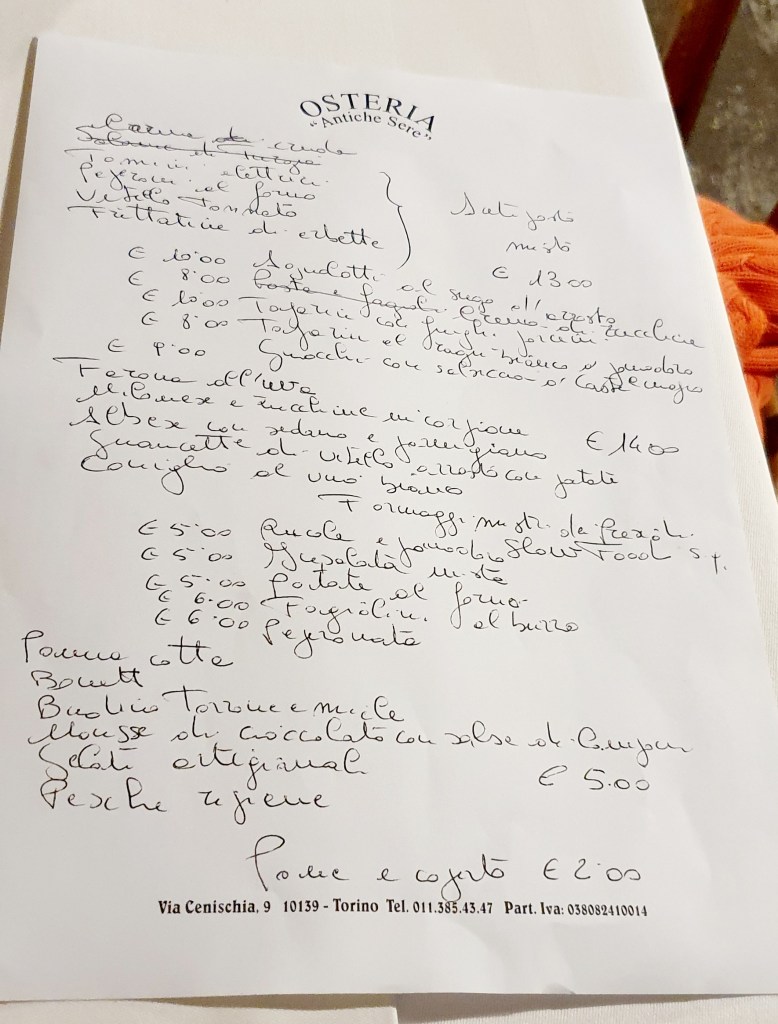 OSTERIA
"Antiche Sere"
Carne cruda
Salame di Turgia
Tomini elettrici
Peperoni al forno
Vitello Tonnato
Frittatine di erbette
Antipasti
misti
€ 13.00
€ 10.00 Agnolotti al sugo d'arrosto
€ 8.00 Pasta e fagioli Crema di zucchine
€ 10.00 Tajarin con funghi porcini
€ 8.00 Tajarin al ragu bianco o pomodoro
€ 9.00 Gnocchi con salsiccia o Castelmagno
Faraona all'uva
Milanese e zucchine in carpione
Albese con sedano e parmigiano € 14.00
Guancette di vitello arrosto con patate
Coniglio al vino bianco
Formaggi misti da
€ 5.00 Rucola e pomodoro Slow Food
€ 5.00 Insalata mista
€ 5.00 Patate al forno
€ 6.00 Fagiolini al burro
€ 6.00 Peperonata
Panna cotta
Bonett
Budino Torrone e miele
Mousse di cioccolato con salsa di
Gelati artigianali € 5.00
Pesche ripiene
Pane e coperto € 2.00
Via Cenischia, 9 10139 - Torino Tel. 011.385.43.47 Part. Iva: 038082410014